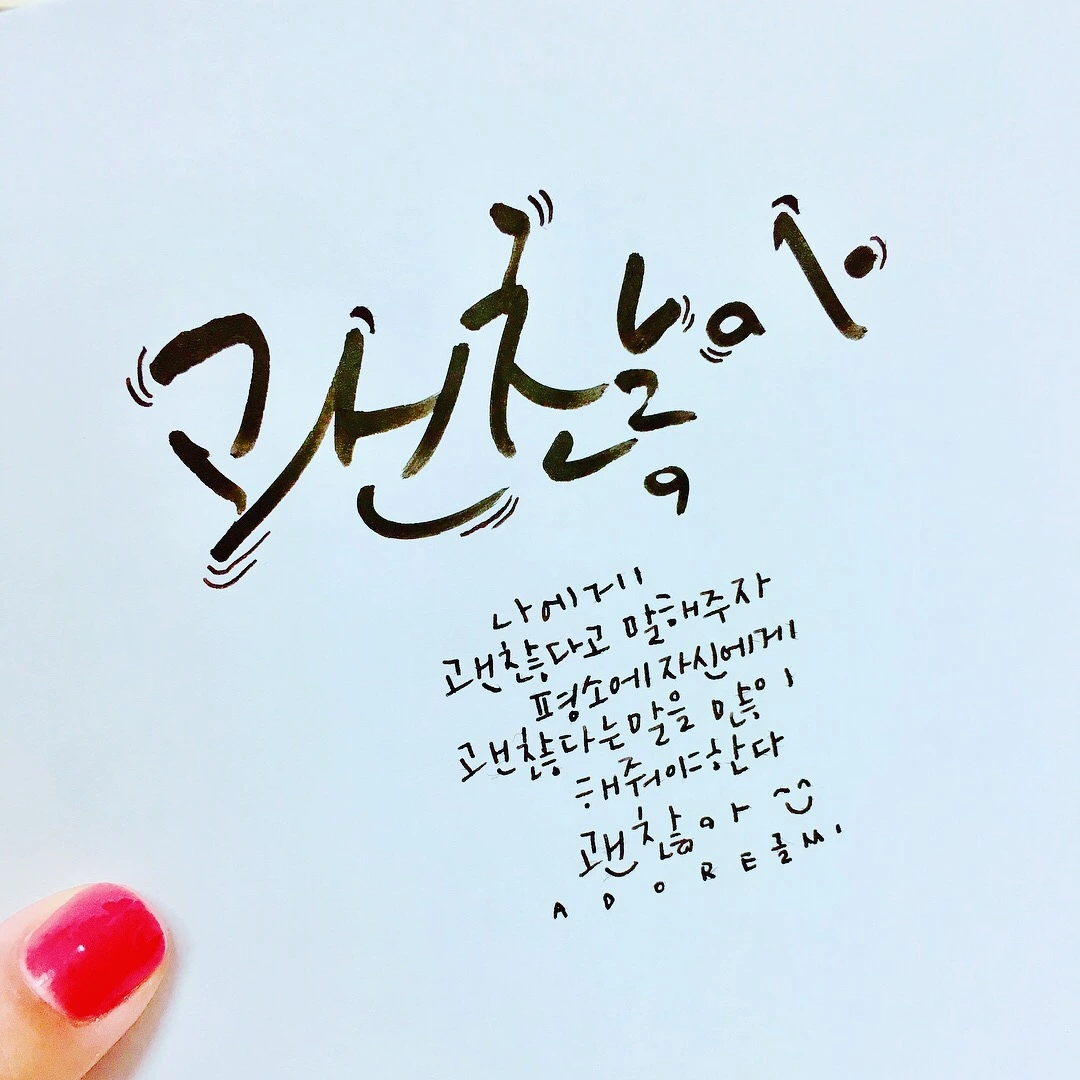 괜찮아
나에게
괜찮다고 말해주자
평소에 자신에게
괜찮다는말을 많이
해줘야한다
괜찮아
ADORE글씨